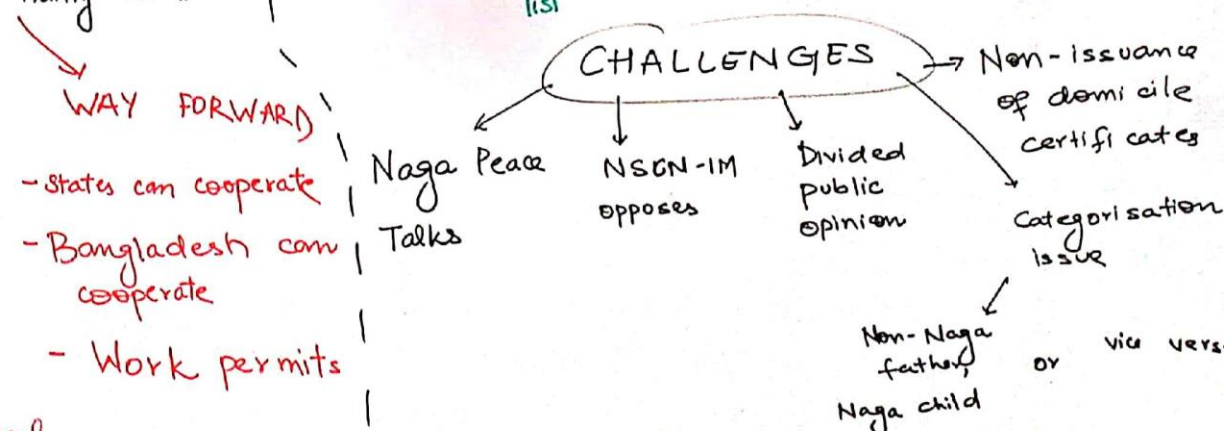 list
WAY FORWARD
- States can cooperate
- Bangladesh can
cooperate
- Work permits
CHALLENGES
Naga Peace
Talks
NSGN-IM
opposes
Divided
public
opinion
Non-issuance
of domicile
certificates
Categorisation
issue
Non-Naga
father,
Naga child
or
vice vers